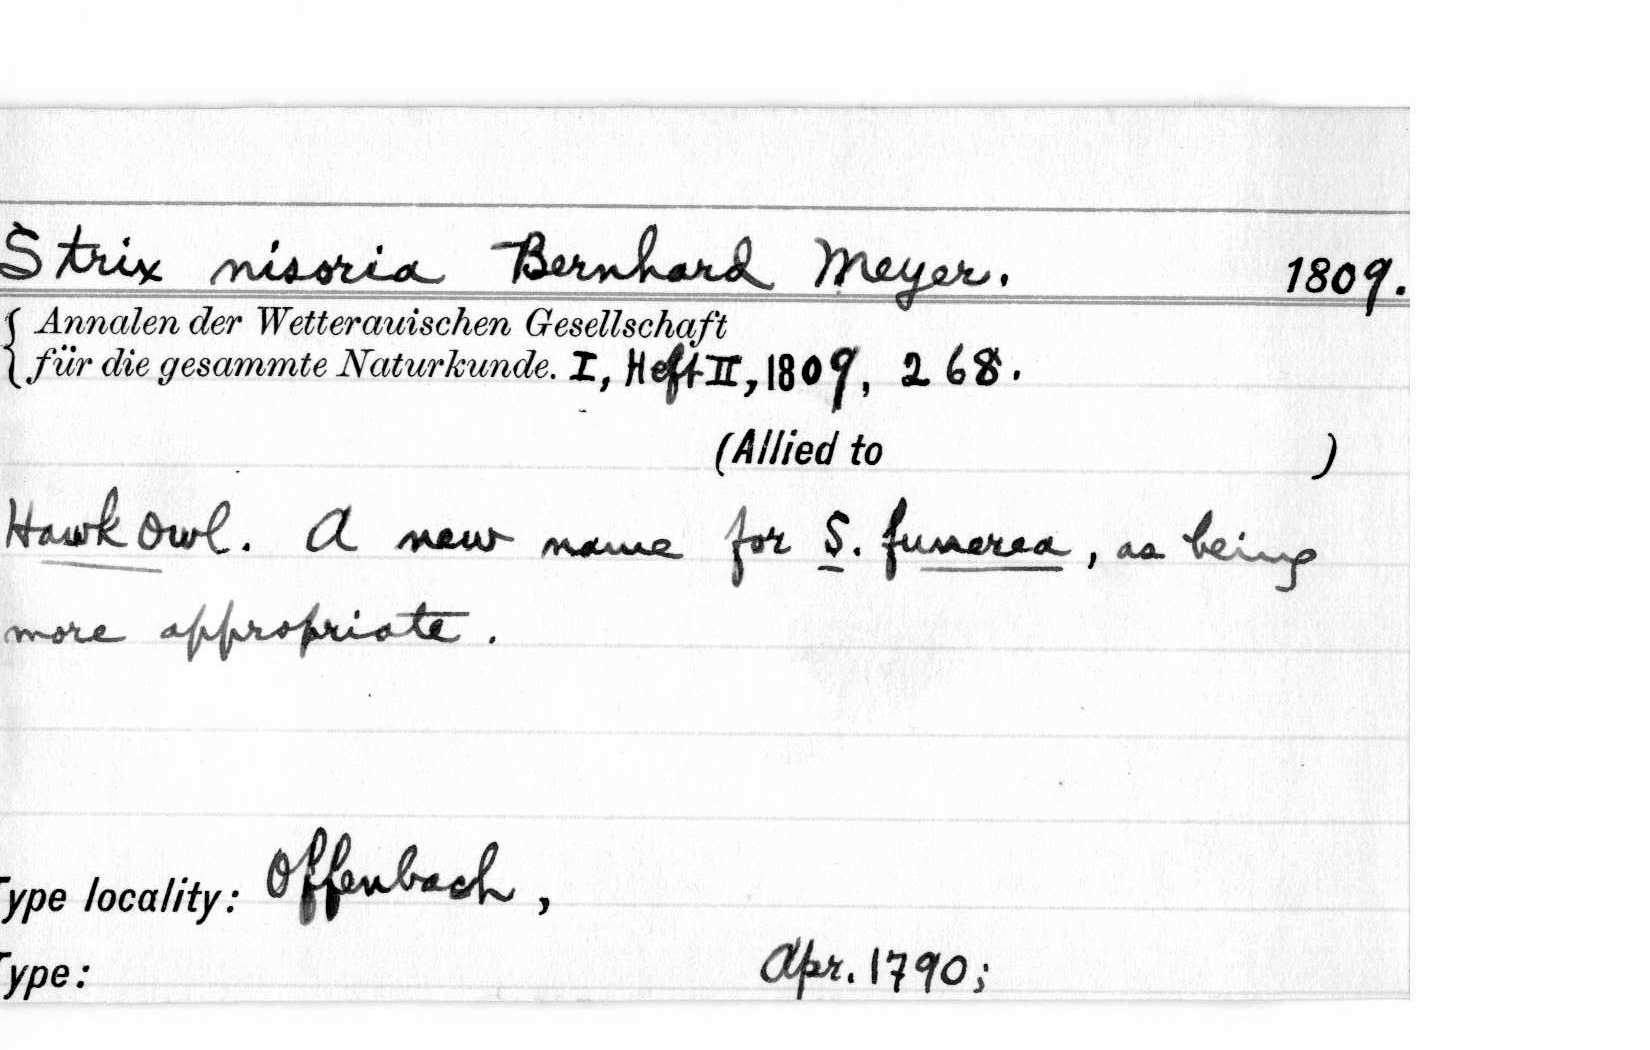 Strix nisoria Bernhard Meyer. 1809.
{ Annalen der Wetterauischen Gesellschaft
für die gesammte Naturkunde. I, Heft II, 1809, 268.
(Allied to )
Hawk Owl. A new name for S. funerea, as being
more appropriate.
Type locality: Offenbach,
Type: Apr. 1790;